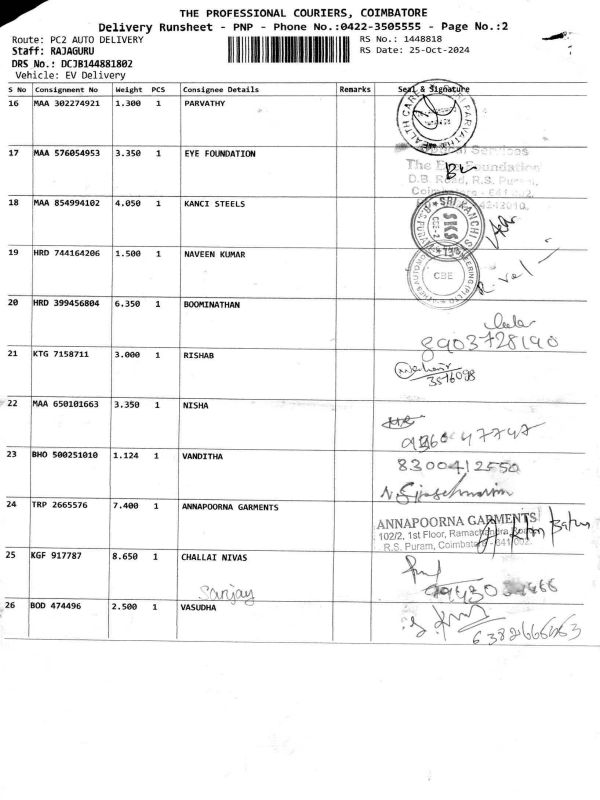 THE PROFESSIONAL COURIERS, COIMBATORE
Delivery Runsheet - PNP - Phone No.:0422-3505555 - Page No.:2
Route: PC2 AUTO DELIVERY RS No.: 1448818
Staff: RAJAGURU RS Date: 25-Oct-2024
DRS No.: DCJB144881802
Vehicle: EV Delivery
S No Consignment No Weight PCS Consignee Details Remarks Seal & Signature
16 MAA 302274921 1.300 1 PARVATHY
17 MAA 576054953 3.350 1 EYE FOUNDATION
Services
The Eye Foundation
D.B. Road, R.S. Puram,
Coimbatore - 641 002.
18 MAA 854994102 4.050 1 KANCI STEELS
SRI KANCHI
SKS
19 HRD 744164206 1.500 1 NAVEEN KUMAR
CBE
20 HRD 399456804 6.350 1 BOOMINATHAN
8903728190
21 KTG 7158711 3.000 1 RISHAB
3516098
22 MAA 650101663 3.350 1 NISHA
23 BHO 500251010 1.124 1 VANDITHA
8300412550
24 TRP 2665576 7.400 1 ANNAPOORNA GARMENTS
ANNAPOORNA GARMENTS
102/2, 1st Floor, Ramachandra Road,
R.S. Puram, Coimbatore - 641 002.
25 KGF 917787 8.650 1 CHALLAI NIVAS
Sanjay
26 BOD 474496 2.500 1 VASUDHA